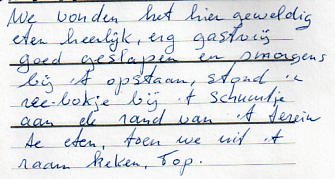 We vonden het hier geweldig
eten heerlijk, erg gastvrij
goed geslapen en smorgens
bij 't opstaan, stond 'n
ree-bokje bij 't schuurtje
aan de rand van 't terein
te eten, toen we uit 't
raam keken, Top.